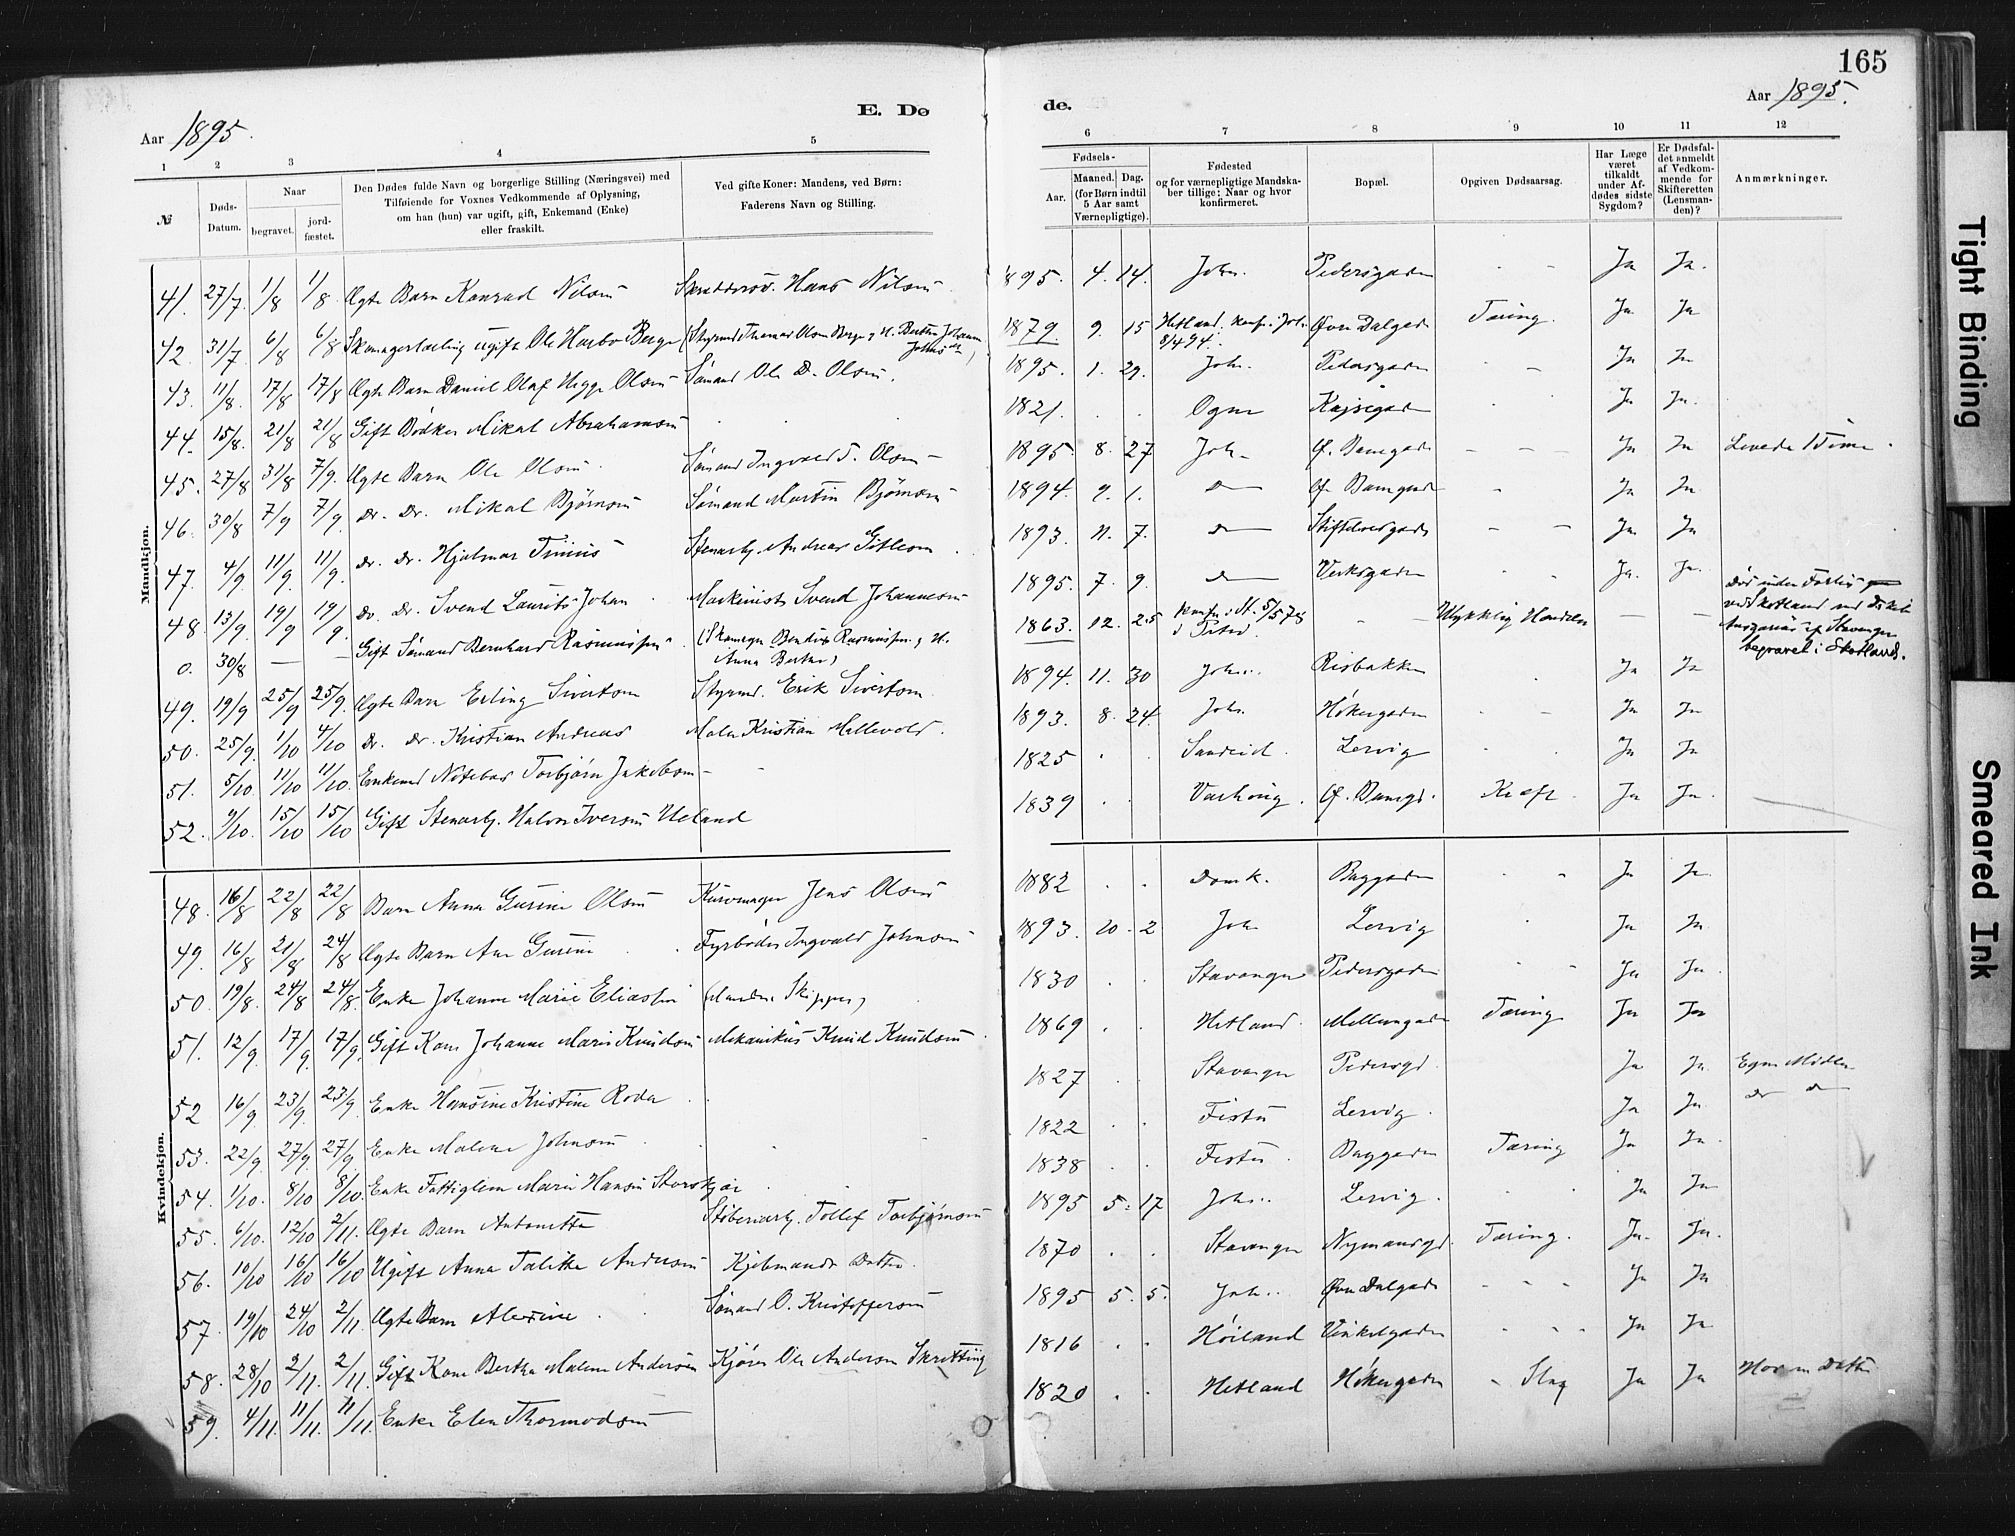 165
Aar 1895.
E. Dø
de.
Aar 1895.
1 2 3 4 5 6 7 8 9 10 11 12
№
Døds-Datum.
Naar
begravet.
jord-fæstet.
Den Dødes fulde Navn og borgerlige Stilling (Næringsvei) med
Tilføiende for Voxnes Vedkommende af Oplysning,
om han (hun) var ugift, gift, Enkemand (Enke)
eller fraskilt.
Ved gifte Koner: Mandens, ved Børn:
Faderens Navn og Stilling.
Fødsels-
Aar.
Maaned. Dag.
(for Børn indtil
5 Aar samt
Værnepligtige).
Fødested
og for værnepligtige Mandska-
ber tillige: Naar og hvor
konfirmeret.
Bopæl.
Opgiven Dødsaarsag.
Har Læge
været
tilkaldt
under Af-
dødes sidste
Sygdom?
Er Dødsfal-
det anmeldt
af Vedkom-
mende for
Skifteretten
(Lensman-
den)?
Anmærkninger.
Mandkjøn.
41. 27/7. 1/8 1/8. Ægte Barn Konrad Nilsen Hans Nilsen 1895. 4. 14. Joh. Pedersgaden - - Ja Ja.
42. 31/7 6/8 6/8 Skomagerlærling ugift Ole Berge 1879. 9. 15 Hetland. konf. i Joh. 8/4 94. Øvre Dalgade Tæring. Ja Ja
43. 11/8. 17/8 17/8 Ægte Barn Daniel Olaf Olsen Sømand Ole D. Olsen. 1895. 1. 29. Joh. Pedersgaden - - Ja Ja
44. 15/8. 21/8 21/8 Gift Bødker Mikal Abrahamsen 1821. . . Ogne Kajsegaden Ja Ja.
45. 27/8 31/8 7/9. Ægte Barn Ole Olsen Sømand Ingvald T. Olsen 1895. 8. 27 Joh. Ø. Banegaden - - - Ja Ja Levede 1 Time.
46. 30/8 7/9 7/9. Do. Do. Mikal Bjørnsen Sømand Martin Bjørnsen 1894. 9. 1. Do Ø. Banegade - Ja Ja.
47. 4/9. 11/9. 11/9. Do. Do. Hjalmar Tinius Stenarb. Andreas Gitlesen. 1893. 11. 7. Do - - Ja Ja
48. 13/9. 19/9 19/9. Do. Do. Svend Laurits Johan Maskinist Svend Johannesen 1895. 7. 9. Do Verksgaden Ja. Ja.
0. 30/8 — — Gift Sømand Bernhard Rasmussen (Skomager Bendix Rasmussen, H.
Anna Berta) 1863. 12. 25 konf. i St. 5/5 78 - - Ulykkelig Hændelse - - ved Skotland
af Stavanger
begravet i Skotland.
49. 19/9 25/9 25/9. Ægte Barn Erling Sivertsen Styrmd. Erik Sivertsen 1894. 11. 30 Joh. Risbakken Ja Ja
50. 25/9. 1/10 4/10 Do. Do. Kristian Andreas Maler Kristian Mellevold. 1893. 8. 24. Joh. Høkergaden - - Ja Ja
51. 5/10. 11/10 11/10. Enkemd Torbjørn Jakobsen - - 1825 . . Sandeid. Lervig Ja Ja
52. 9/10. 15/10 15/10 Gift Stenarb. Halvor Iversen Ueland 1839 . . Varhoug. Ø. Banegd. Kræft. Ja Ja.
Kvindekjøn.
48. 16/8 22/8 22/8 Barn Anna Gurine Olsen Kurvmager Jens Olsen 1882 . . Domk. Baggaden - - Ja Ja
49. 16/8 21/8 24/8 Ægte Barn Ane Gurine Fyrbøder Ingvald Johnsen 1893. 10. 2 Joh Lervig Ja Ja
50. 19/8. 24/8 24/8. Enke Johanne Marie Eliassen (Manden Skipper) 1830 . . Stavanger Pedersgaden - - Ja Ja.
51. 12/9. 17/9 17/9. Gift Kone Johanne Marie Knudsen Mekanikus Knud Knudsen 1869 . . Hetland. Mellemgaden Tæring Ja Ja
52 16/9 23/9. 23/9. Enke Hansine Kristine Roda 1827 . . Stavanger Pedersgd. Ja Ja. Egne Midler
53. 22/9. 27/9 27/9 Enke Malene Johnsen 1822 . . Fister Lervig. Ja Ja Do Do
54. 1/10. 8/10 8/10. Enke Fattiglem Marie Hansen Storskjær 1838 . . Fister. Baggaden Tæring Ja Ja.
55. 6/10. 12/10 2/11. Ægte Barn Antonette Støberiarb. Tollef Torbjørnsen 1895 5. 17 Joh. Lervig. Ja Ja
56. 10/10 16/10 16/10 Ugift Anna Talitha Andersen Kjøbmands Datter. 1870 . . Stavanger Nymansgd. Tæring. Ja. Ja.
57. 19/10 24/10 2/11. Ægte Barn Alexine Sømand O. Kristoffersen 1895 5. 5. Joh. Øvre Dalgade - - - Ja Ja
58. 28/10 2/11. 2/11. Gift Kone Bertha Malene Andersen Kjører Ole Andersen Skretting 1816 . . Høiland Vinkelgaden - - - Ja Ja
59. 4/11. 11/11. 11/11. Enke Elen Thormodsen 1820 . . Hetland Høkergaden - Slag Ja Ja Hos en Datter
Tight Binding
Smeared Ink